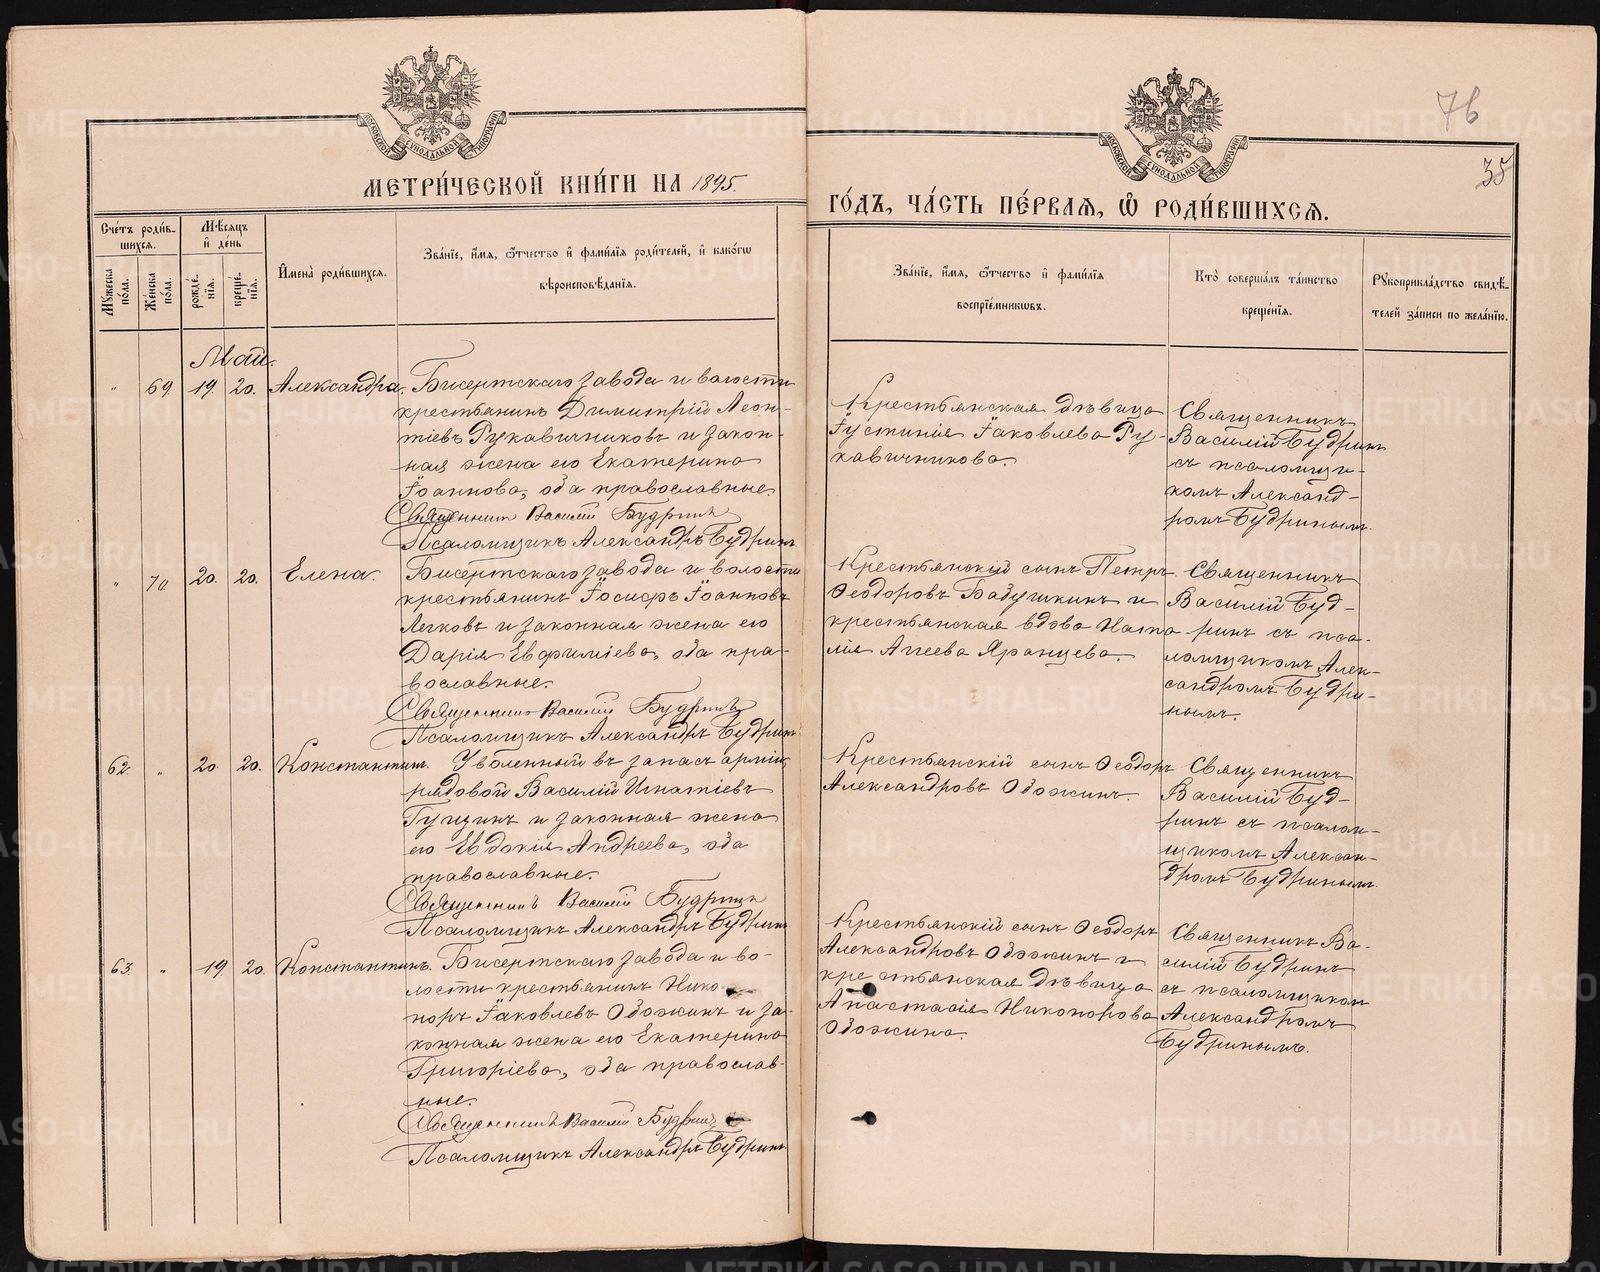 76
35
МОСКОВСКОЙ СУНОДАЛЬНОЙ ТИПОГРАФИИ
МОСКОВСКОЙ СУНОДАЛЬНОЙ ТИПОГРАФИИ
МЕТРИ́ЧЕСКОЙ КНИ́ГИ НА 1895.
ГО́ДЪ, ЧА́СТЬ ПЕ́РВАЯ, Ѽ РОДИ́ВШИХСЯ.
Сче́тъ роди́в-
шихся.
Мѣ́сяцъ
и҆ де́нь
Мꙋ́жеска по́ла.
Же́нска по́ла.
рожде́-
нїя.
креще́-
нїя.
И҆мена̀ роди́вшихся.
Зва́нїе, и҆́мя, ѻ҆́тчество и҆ фами́лїя роди́телей, и҆ како́гѡ
вѣроисповѣ́данїя.
Зва́нїе, и҆́мя, ѻ҆́тчество и҆ фами́лїя
воспрїе́мникѡвъ.
Кто̀ соверша́лъ та́инство
креще́нїя.
Рꙋкоприкла́дство свидѣ́-
телей за́писи по жела́нїю.
Май.
" 69. 19. 20. Александра.
Бисертскаго завода и волости
крестьянинъ Димитрій Леон-
тіевъ Рукавичниковъ и закон-
ная жена его Екатерина
Іоаннова, оба православные.
Священникъ Василій Будринъ
Псаломщикъ Александръ Будринъ
Крестьянская дѣвица
Іустинія Іаковлева Ру-
кавичникова.
Священникъ
Василій Будринъ
съ псаломщи-
комъ Александ-
ромъ Будринымъ.
" 70. 20. 20. Елена.
Бисертскаго завода и волости
крестьянинъ Іосифъ Іоанновъ
Легковъ и законная жена его
Дарія Евфиміева, оба пра-
вославные.
Священникъ Василій Будринъ
Псаломщикъ Александръ Будринъ
Крестьянскій сынъ Петръ
Ѳеодоровъ Бабушкинъ и
крестьянская вдова Ната-
лія Агеева Яранцева.
Священникъ
Василій Буд-
ринъ съ пса-
ломщикомъ Алек-
сандромъ Будри-
нымъ.
62. " 20. 20. Константинъ.
Уволенный въ запасъ арміи
рядовой Василій Игнатіевъ
Гущинъ и законная жена
его Евдокія Андреева, оба
православные.
Священникъ Василій Будринъ
Псаломщикъ Александръ Будринъ
Крестьянскій сынъ Ѳеодоръ
Александровъ Обожинъ.
Священникъ
Василій Буд-
ринъ съ псалом-
щикомъ Алексан-
дромъ Будринымъ.
63. " 19 20. Константинъ.
Бисертскаго завода и во-
лости крестьянинъ Нико-
норъ Іаковлевъ Обожинъ и за-
конная жена его Екатерина
Григоріева, оба православ-
ные.
Священникъ Василій Будринъ
Псаломщикъ Александръ Будринъ
Крестьянскій сынъ Ѳеодоръ
Александровъ Обожинъ и
крестьянская дѣвица
Анастасія Никонорова
Обожина.
Священникъ Ва-
силій Будринъ
съ псаломщикомъ
Александромъ
Будринымъ.
METRIKI.GASO-URAL.RU